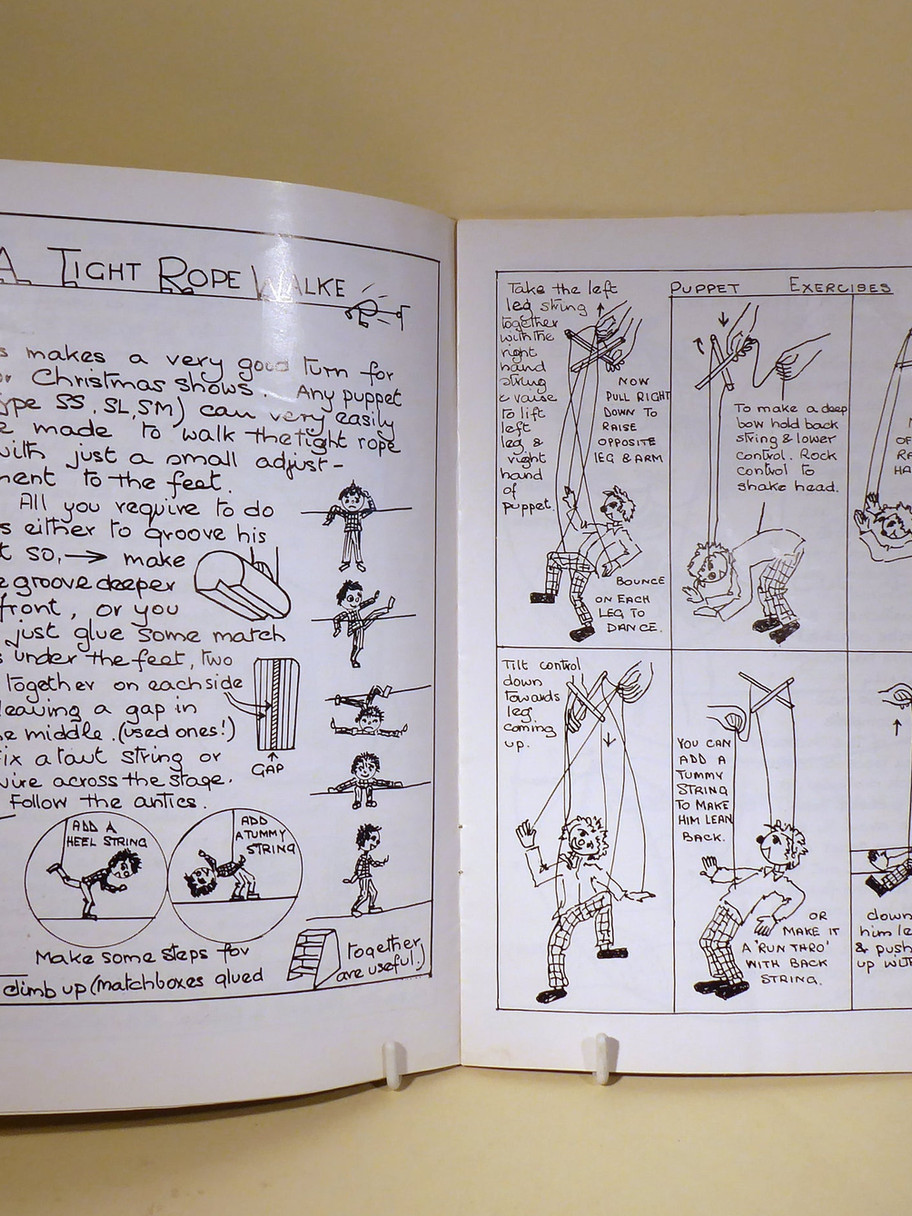 A TIGHT ROPE WALKE
makes a very good turn for
Christmas shows. Any puppet
SS, SL, SM) can very easily
made to walk the tight rope
with just a small adjust-
ment to the feet.
All you require to do
is either to groove his
so, → make
groove deeper
front, or you
just glue some match
under the feet, two
together on each side
leaving a gap in
middle. (used ones!)
Fix a taut string or
wire across the stage.
Follow the antics.
GAP
ADD A
HEEL STRING
ADD
A TUMMY
STRING
Make some steps for
climb up (matchboxes glued
together
are useful.)
PUPPET EXERCISES
Take the left
leg string
together
with the
right
hand
string
& raise
to lift
left
leg &
right
hand
of
puppet.
NOW
PULL RIGHT
DOWN TO
RAISE
OPPOSITE
LEG & ARM
BOUNCE
ON EACH
LEG TO
DANCE.
To make a deep
bow hold back
string & lower
control. Rock
control to
shake head.
Tilt control
down
towards
leg
coming
up.
YOU CAN
ADD A
TUMMY
STRING
TO MAKE
HIM LEAN
BACK.
OR
MAKE IT
A 'RUN THRO'
WITH BACK
STRING.
down
him
& push
up